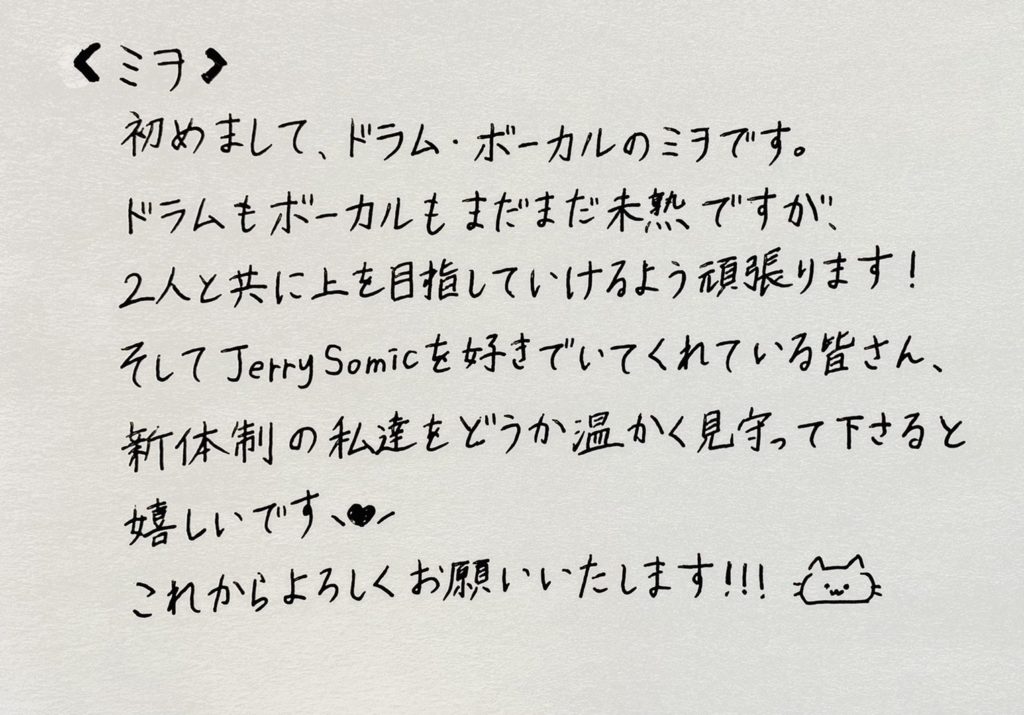 <ミヲ>
初めまして、ドラム・ボーカルのミヲです。
ドラムもボーカルもまだまだ未熟ですが、
2人と共に上を目指していけるよう頑張ります！
そしてJerry Somicを好きでいてくれている皆さん、
新体制の私達をどうか温かく見守って下さると
嬉しいです♥
これからよろしくお願いいたします!!!